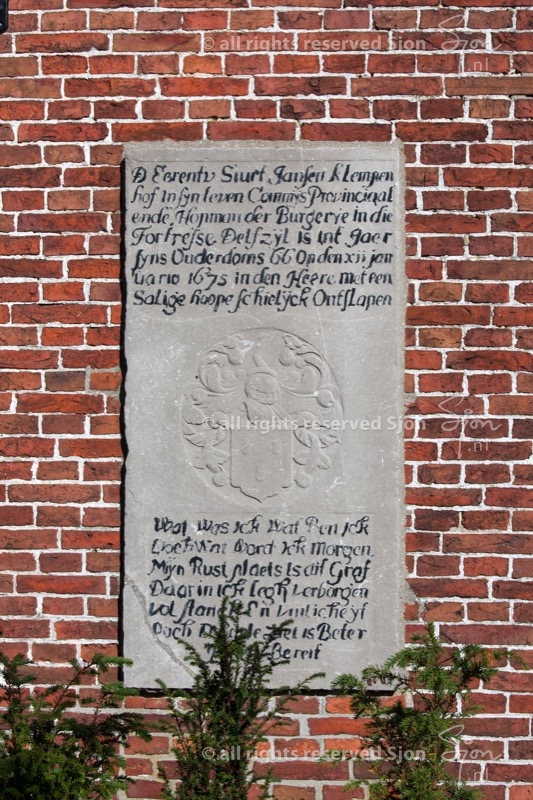 © all rights reserved Sjon
Sjon.nl
D Eerentv Siurt Jansen Klempen
hof In syn leven Commys Provinciaal
ende, Hopman der Burgerye in die
Fortresse Delfzyl is int Jaer
syns Ouderdoms 66 Op den xii jan
uario 1675 in den Heere met een
Salige hoope schielyck Ontslapen
© all rights reserved Sjon
Sjon.nl
Wat Was Ick Wat Ben Ick
Doch Wat Word Ick Morgen
Mijn Rust plaets Is dit Graf
Daar in Ick legh verborgen
Vol
Doch De Ziele is Beter
Bereit
© all rights reserved Sjon
Sjon.nl